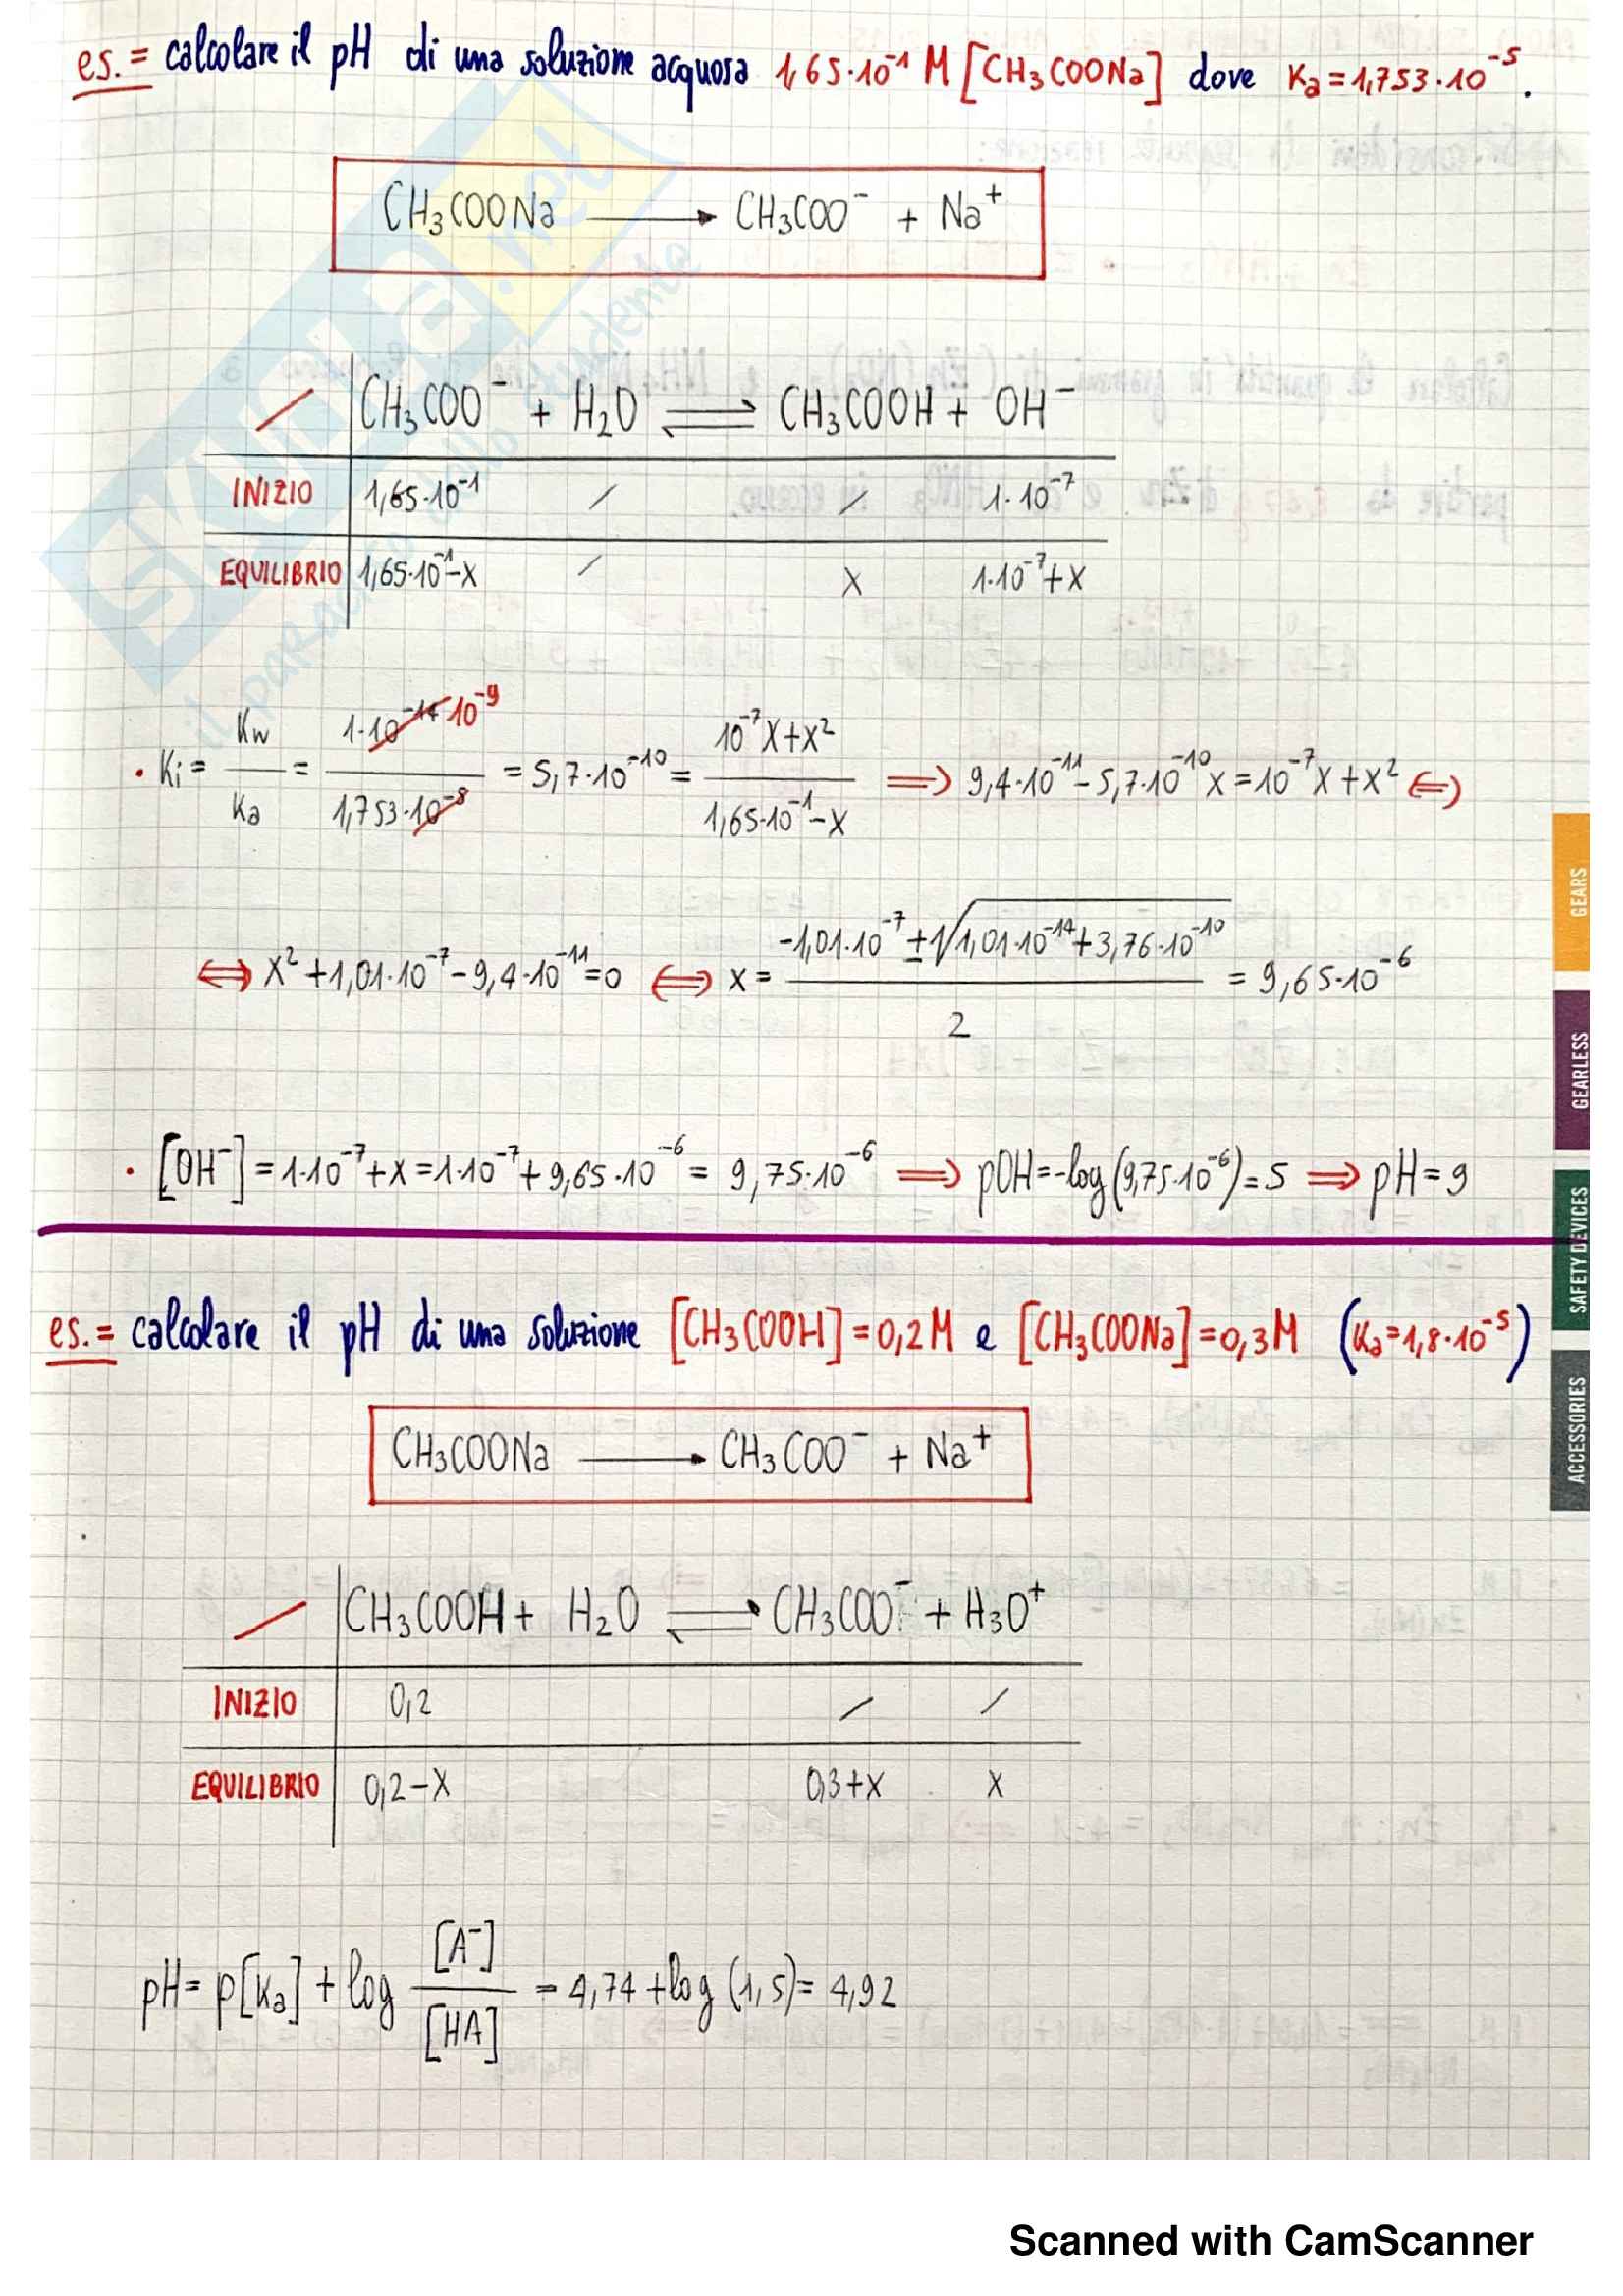 es. = calcolare il pH di una soluzione acquosa 1,65·10⁻¹ M [CH₃COONa] dove Ka = 1,753·10⁻⁵.
CH₃COONa → CH₃COO⁻ + Na⁺
CH₃COO⁻ + H₂O ⇌ CH₃COOH + OH⁻
INIZIO 1,65·10⁻¹ / / 1·10⁻⁷
EQUILIBRIO 1,65·10⁻¹-x / x 1·10⁻⁷+x
• Ki = Kw/Ka = 1·10⁻¹⁴ 10⁻⁹/1,753·10⁻⁵ = 5,7·10⁻¹⁰ = 10⁻⁷x+x²/1,65·10⁻¹-x ⟹ 9,4·10⁻¹¹-5,7·10⁻¹⁰x = 10⁻⁷x+x² ⟺
⟺ x²+1,01·10⁻⁷-9,4·10⁻¹¹=0 ⟺ x = -1,01·10⁻⁷±√1,01·10⁻¹⁴+3,76·10⁻¹⁰/2 = 9,65·10⁻⁶
• [OH⁻] = 1·10⁻⁷+x = 1·10⁻⁷+9,65·10⁻⁶ = 9,75·10⁻⁶ ⟹ pOH=-log(9,75·10⁻⁶)=5 ⟹ pH=9
es. = calcolare il pH di una soluzione [CH₃COOH]=0,2M e [CH₃COONa]=0,3M (Ka=1,8·10⁻⁵)
CH₃COONa → CH₃COO⁻ + Na⁺
CH₃COOH + H₂O ⇌ CH₃COO⁻ + H₃O⁺
INIZIO 0,2 / /
EQUILIBRIO 0,2-x 0,3+x x
pH = p[Ka] + log [A⁻]/[HA] = 4,74 + log (1,5) = 4,92
GEARS
GEARLESS
SAFETY DEVICES
ACCESSORIES
Scanned with CamScanner